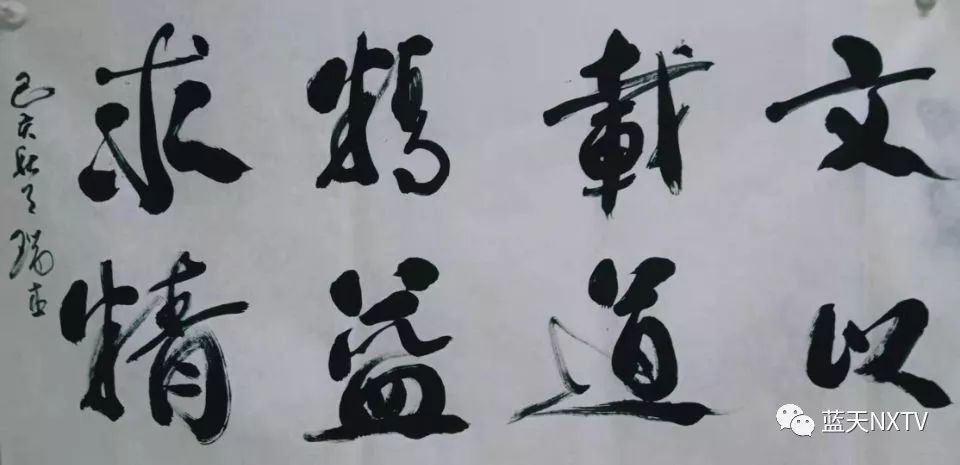 文以
載道
精益
求精
己亥秋月 瑞
蓝天NXTV